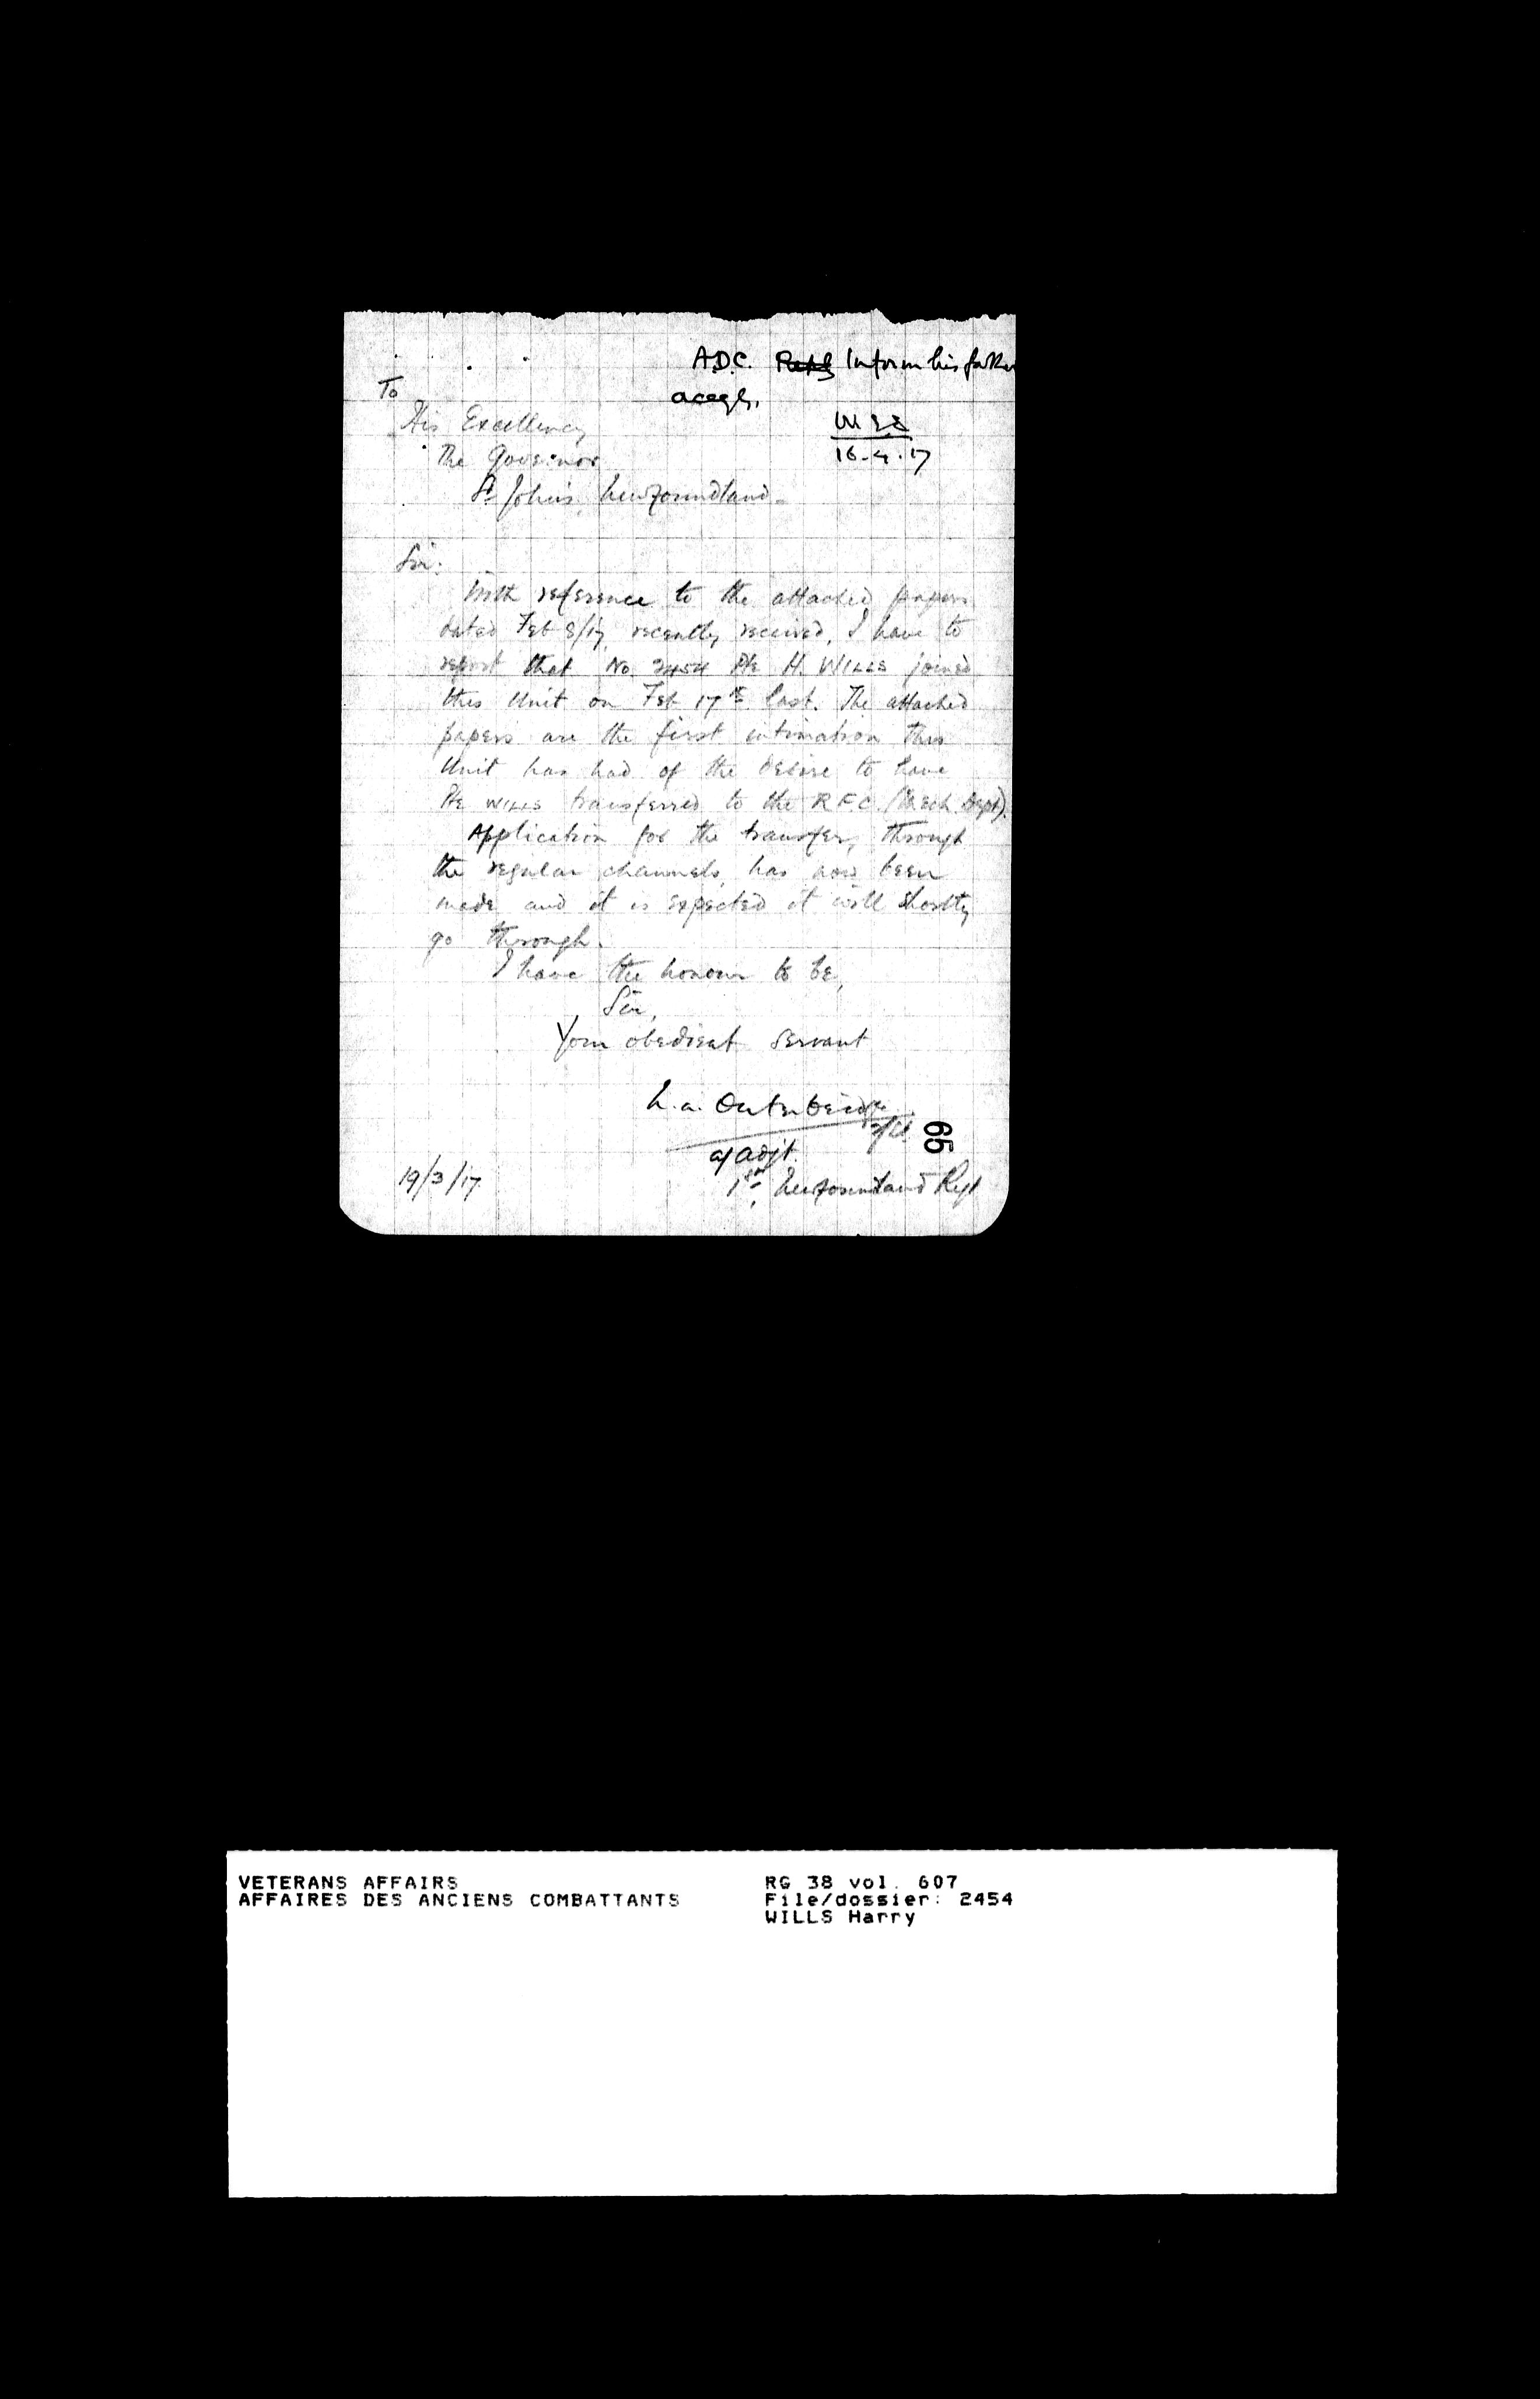 A.D.C. Reply Inform his father
To
His Excellency
The Governor
St John's, Newfoundland.
16-4-17
Sir:
With reference to the attached papers
dated Feb 8/17, recently received, I have to
report that No. 2454 Pte H. WILLS joined
this Unit on Feb 17th last. The attached
papers are the first intimation this
Unit has had of the desire to have
Pte WILLS transferred to the R.F.C. (Mech. Dept).
Application for the transfer, through
the regular channels, has now been
made and it is expected it will shortly
go through.
I have the honour to be,
Sir,
Your obedient servant
h.a. Outerbridge
a/adjt.
65
19/3/17
1st Newfoundland Regt
VETERANS AFFAIRS
AFFAIRES DES ANCIENS COMBATTANTS
RG 38 vol. 607
File/dossier: 2454
WILLS Harry